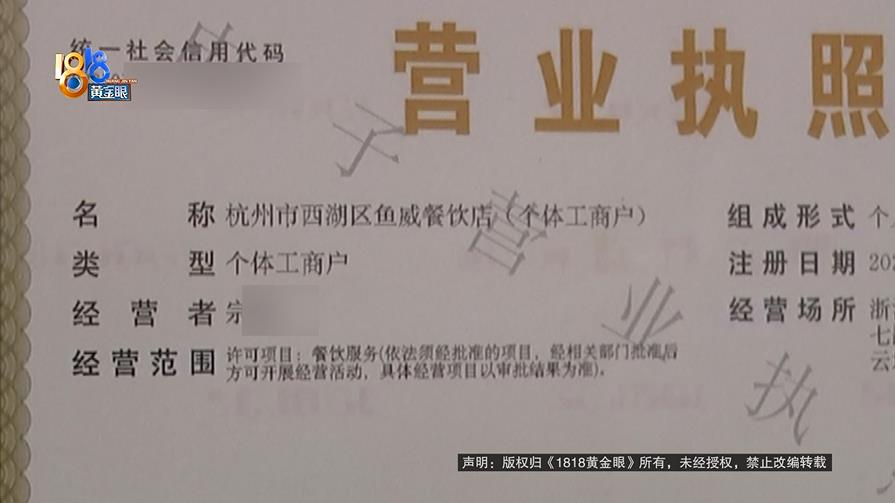 统一社会信用代码
营业执照
1818
HUANG JIN YAN
黄金眼
名称 杭州市西湖区鱼威餐饮店（个体工商户）
组成形式 个
类型 个体工商户
注册日期 202
经营者 宗
经营场所 浙
七
云
经营范围 许可项目：餐饮服务(依法须经批准的项目，经相关部门批准后
方可开展经营活动，具体经营项目以审批结果为准)。
子营业执
声明：版权归《1818黄金眼》所有，未经授权，禁止改编转载